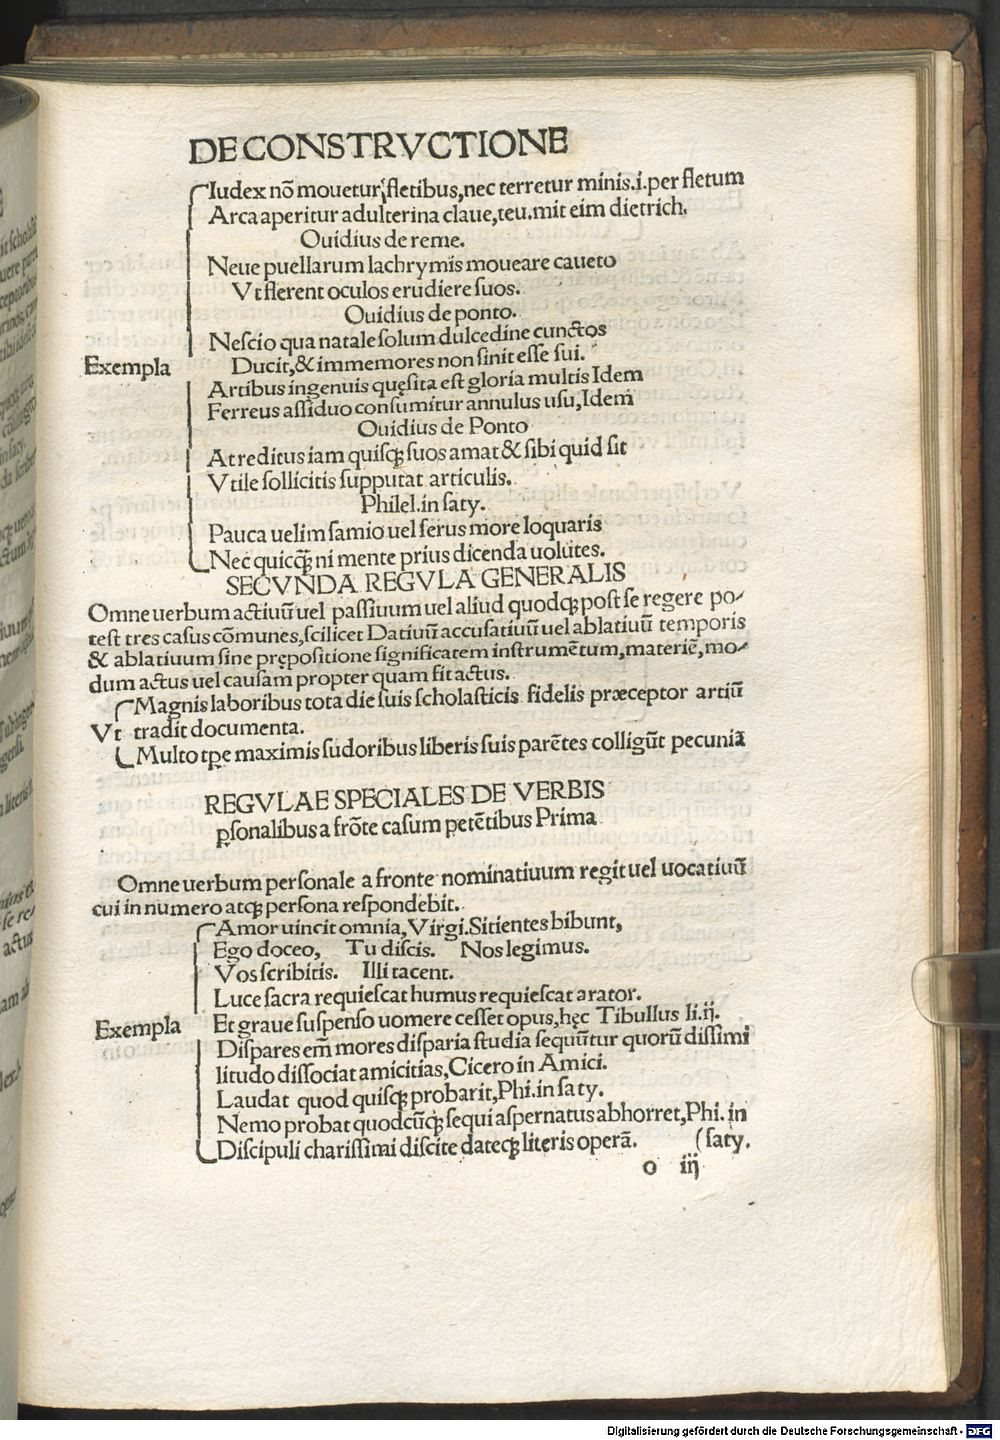 DE CONSTRVCTIONE
Iudex nō mouetur fletibus, nec terretur minis.i.per fletum
Arca aperitur adulterina claue, teu. mit eim dietrich.
Ouidius de reme.
Neue puellarum lachrymis moueare caueto
Vt flerent oculos erudiere suos.
Ouidius de ponto.
Nescio qua natale solum dulcedine cunctos
Exempla Ducit, & immemores non sinit esse sui.
Artibus ingenuis quęsita est gloria multis Idem
Ferreus assiduo consumitur annulus usu, Idem
Ouidius de Ponto
At reditus iam quisqꝫ suos amat & sibi quid sit
Vtile sollicitis supputat articulis.
Philel. in saty.
Pauca uelim samio uel serus more loquaris
Nec quicqꝫ̄ ni mente prius dicenda uolutes.
SECVNDA REGVLA GENERALIS
Omne uerbum actiuū uel passiuum uel aliud quodqꝫ post se regere po-
test tres casus cōmunes, scilicet Datiuū accusatiuū uel ablatiuū temporis
& ablatiuum sine prępositione significatem instrumētum, materiē, mo-
dum actus uel causam propter quam fit actus.
Magnis laboribus tota die suis scholasticis fidelis præceptor artiū
Vt tradit documenta.
Multo tꝑe maximis sudoribus liberis suis parētes colligūt pecuniā
REGVLAE SPECIALES DE VERBIS
ꝑsonalibus a frōte casum petētibus Prima
Omne uerbum personale a fronte nominatiuum regit uel uocatiuū
cui in numero atqꝫ persona respondebit.
Amor uincit omnia, Virgi. Sitientes bibunt,
Ego doceo, Tu discis. Nos legimus.
Vos scribitis. Illi tacent.
Luce sacra requiescat humus requiescat arator.
Exempla Et graue suspenso uomere cesset opus, hęc Tibullus li.ij.
Dispares em̄ mores disparia studia sequūtur quorū dissimi
litudo dissociat amicitias, Cicero in Amici.
Laudat quod quisqꝫ probarit, Phi. in saty.
Nemo probat quodcūqꝫ sequi aspernatus abhorret, Phi. in
Discipuli charissimi discite dateqꝫ literis operā. (saty.
o iij
Digitalisierung gefördert durch die Deutsche Forschungsgemeinschaft - DFG